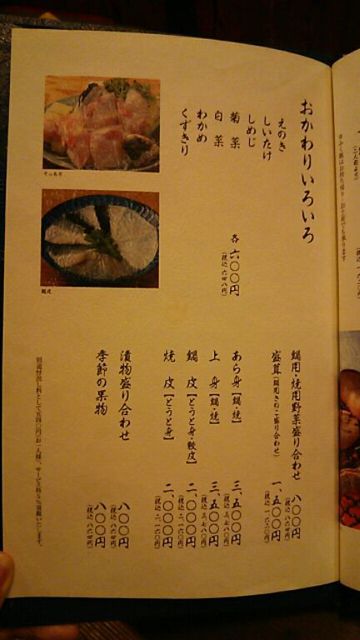 おかわりいろいろ
えのき
しいたけ
しめじ
菊菜
白菜
わかめ
くずきり
各 六〇〇円
(税込 六四八円)
鍋用・焼用野菜盛り合わせ 八〇〇円
(税込 八六四円)
盛茸(鍋用きのこ盛り合わせ) 一、五〇〇円
(税込 一、六二〇円)
あら身【鍋・焼】 三、五〇〇円
(税込 三、七八〇円)
上身【鍋・焼】 三、五〇〇円
(税込 三、七八〇円)
鍋皮【とうと身・軟皮】 二、〇〇〇円
(税込 二、一六〇円)
焼皮【とうと身】 二、〇〇〇円
(税込 二、一六〇円)
漬物盛り合わせ 八〇〇円
(税込 八六四円)
季節の果物 八〇〇円
(税込 八六四円)
鍋皮